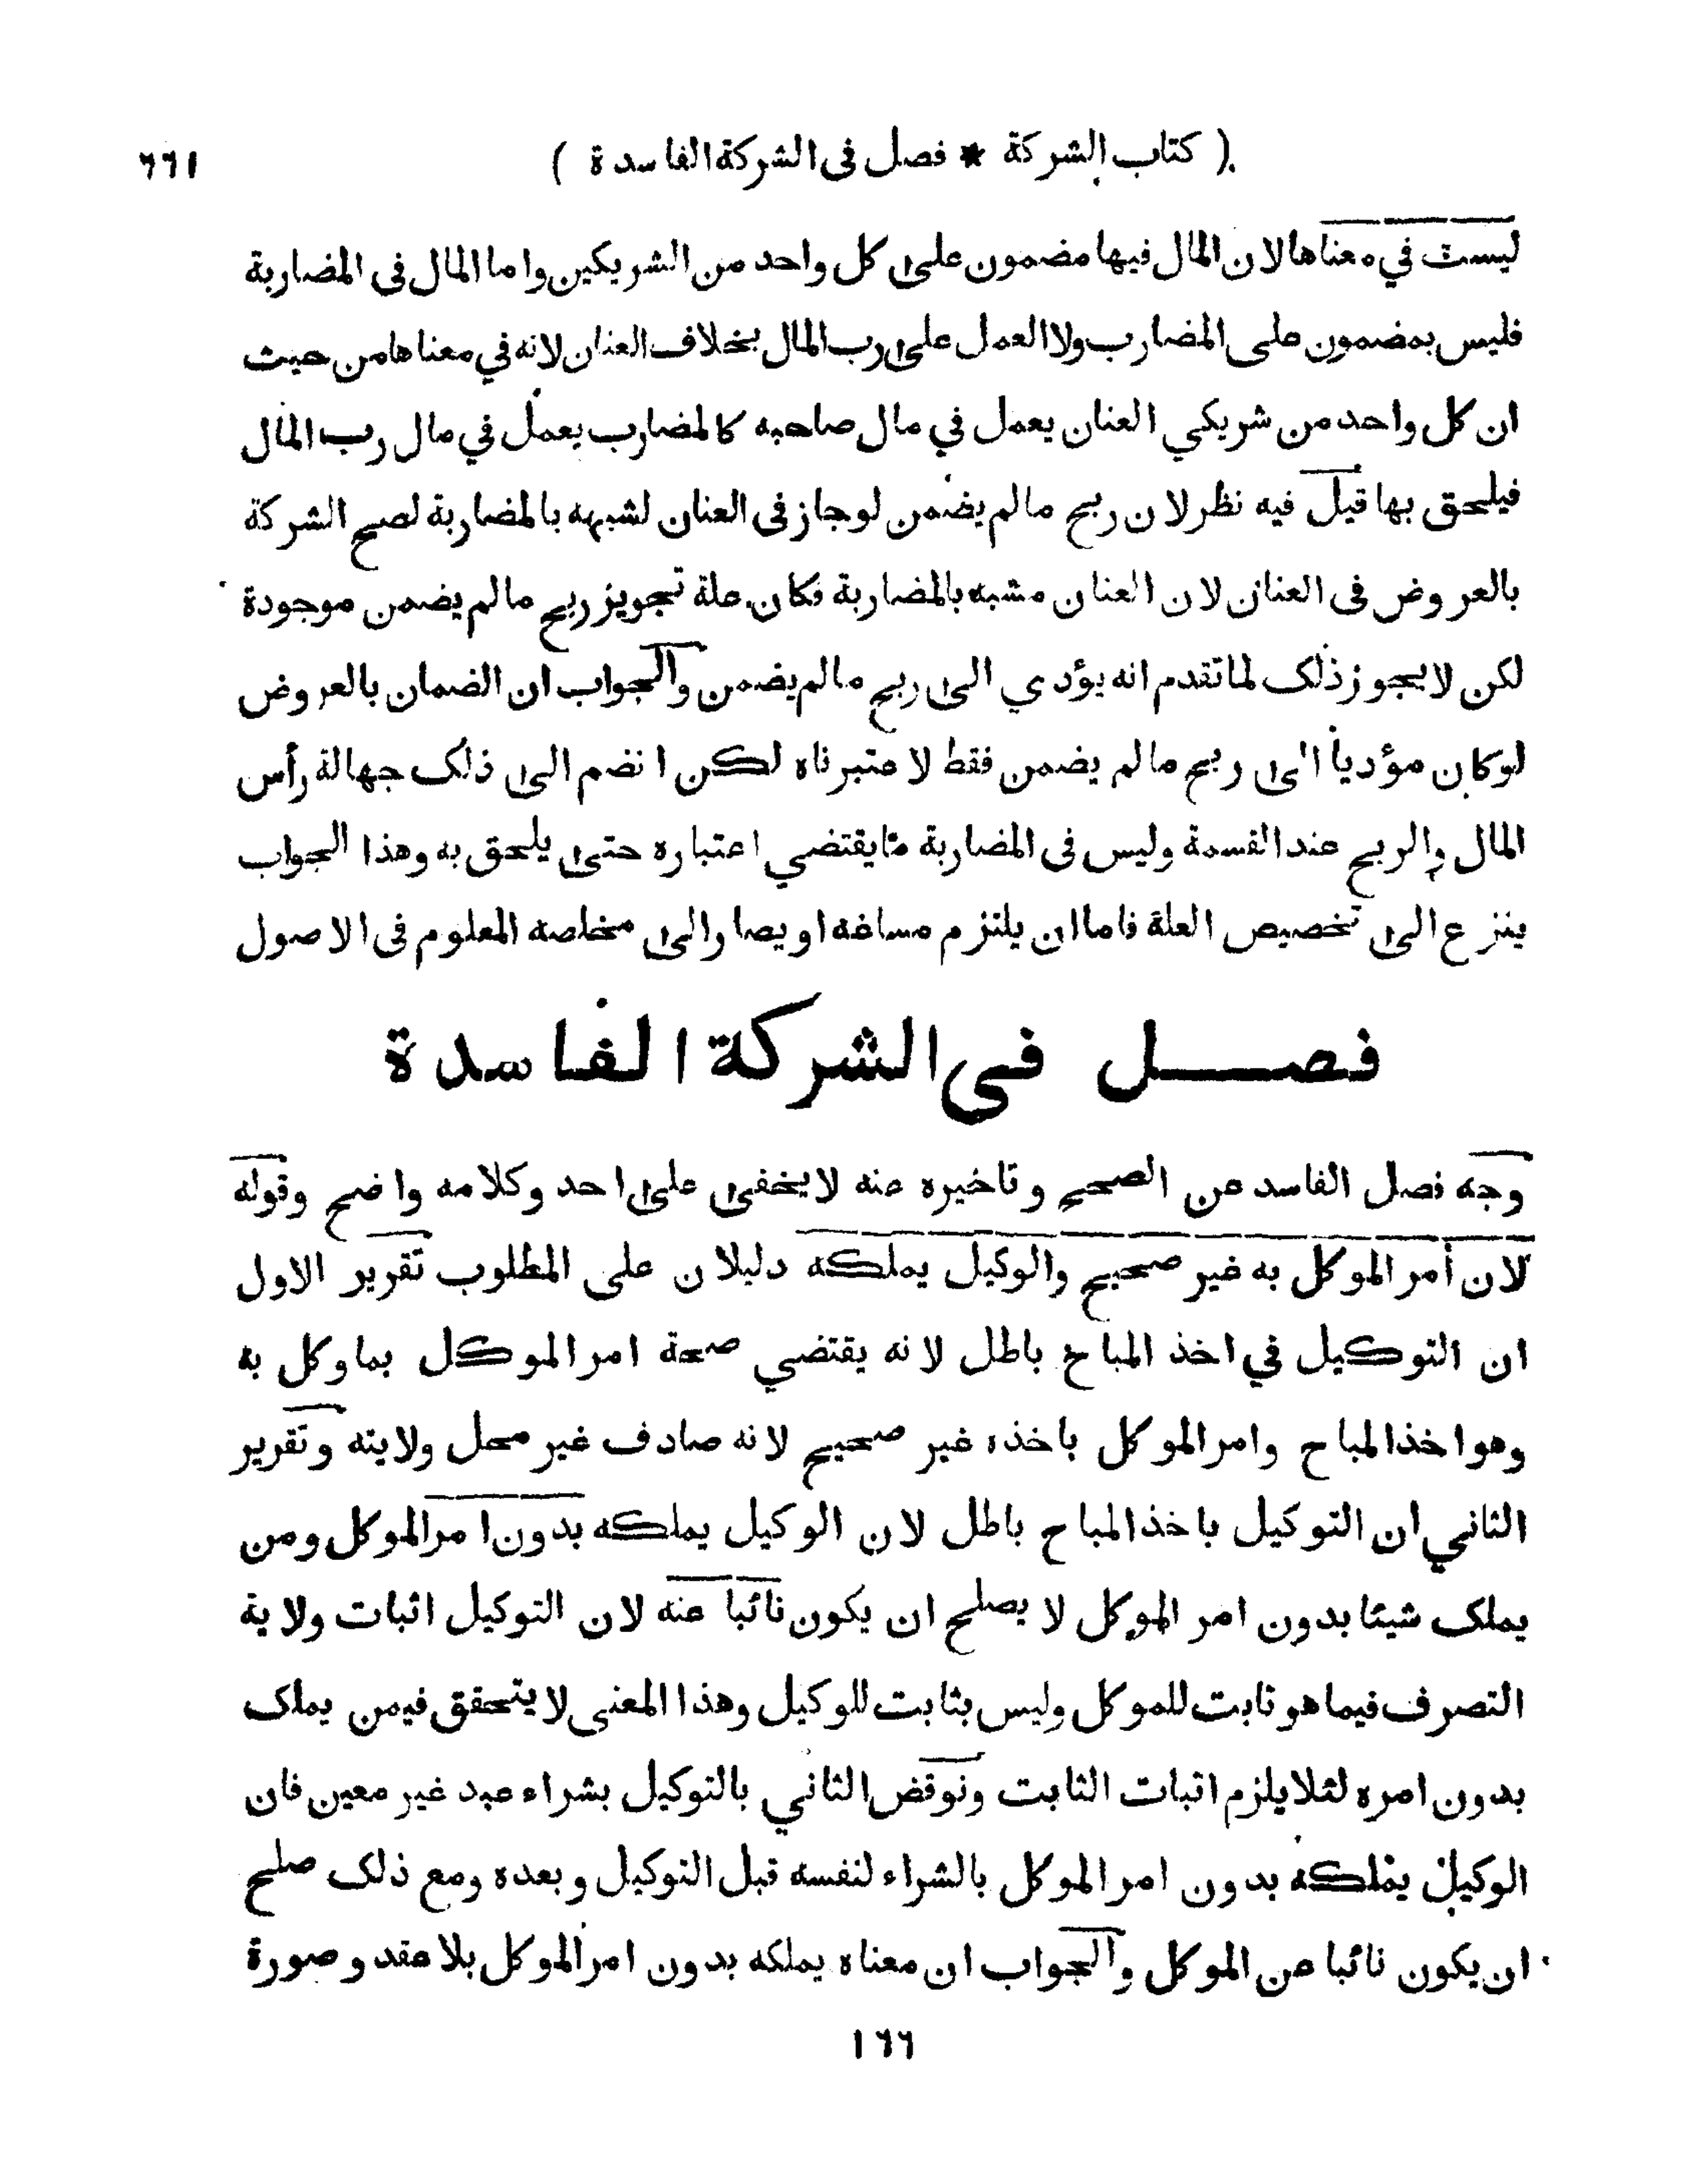 ( كتاب الشركة * فصل فى الشركة الفاسدة )
٦٦١
ليست في معناها لان المال فيها مضمون على كل واحد من الشريكين واما المال فى المضاربة
فليس بمضمون على المضارب ولا العمل على رب المال بخلاف العنان لانه في معناها من حيث
ان كل واحد من شريكي العنان يعمل في مال صاحبه كالمضارب يعمل في مال رب المال
فيلحق بها قيل فيه نظر لان ربح مالم يضمن لوجاز فى العنان لشبهه بالمضاربة لصح الشركة
بالعروض فى العنان لان العنان مشبه بالمضاربة فكان علة تجويز ربح مالم يضمن موجودة
لكن لايجوز ذلك لما تقدم انه يؤدي الى ربح مالم يضمن والجواب ان الضمان بالعروض
لوكان مؤدياً الى ربح مالم يضمن فقط لاعتبرناه لكن انضم الى ذلك جهالة رأس
المال والربح عند القسمة وليس فى المضاربة مايقتضي اعتباره حتى يلحق به وهذا الجواب
ينزع الى تخصيص العلة فاما ان يلتزم مساغه او يصار الى مخلصه المعلوم فى الاصول
فصل في الشركة الفاسدة
وجه فصل الفاسد عن الصحيح وتاخيره عنه لايخفى على احد وكلامه واضح وقوله
لان أمر الموكل به غير صحيح والوكيل يملكه دليلان على المطلوب تقرير الاول
ان التوكيل في اخذ المباح باطل لانه يقتضي صحة امر الموكل بماوكل به
وهو اخذ المباح وامر الموكل باخذه غير صحيح لانه صادف غير محل ولايته وتقرير
الثاني ان التوكيل باخذ المباح باطل لان الوكيل يملكه بدون امر الموكل ومن
يملك شيئا بدون امر الموكل لا يصلح ان يكون نائبا عنه لان التوكيل اثبات ولاية
التصرف فيما هو ثابت للموكل وليس بثابت للوكيل وهذا المعنى لايتحقق فيمن يملك
بدون امره لئلا يلزم اثبات الثابت ونوقض الثاني بالتوكيل بشراء عبد غير معين فان
الوكيل يملكه بدون امر الموكل بالشراء لنفسه قبل التوكيل وبعده ومع ذلك صلح
ان يكون نائبا عن الموكل والجواب ان معناه يملكه بدون امر الموكل بلا عقد وصورة
١٦٦